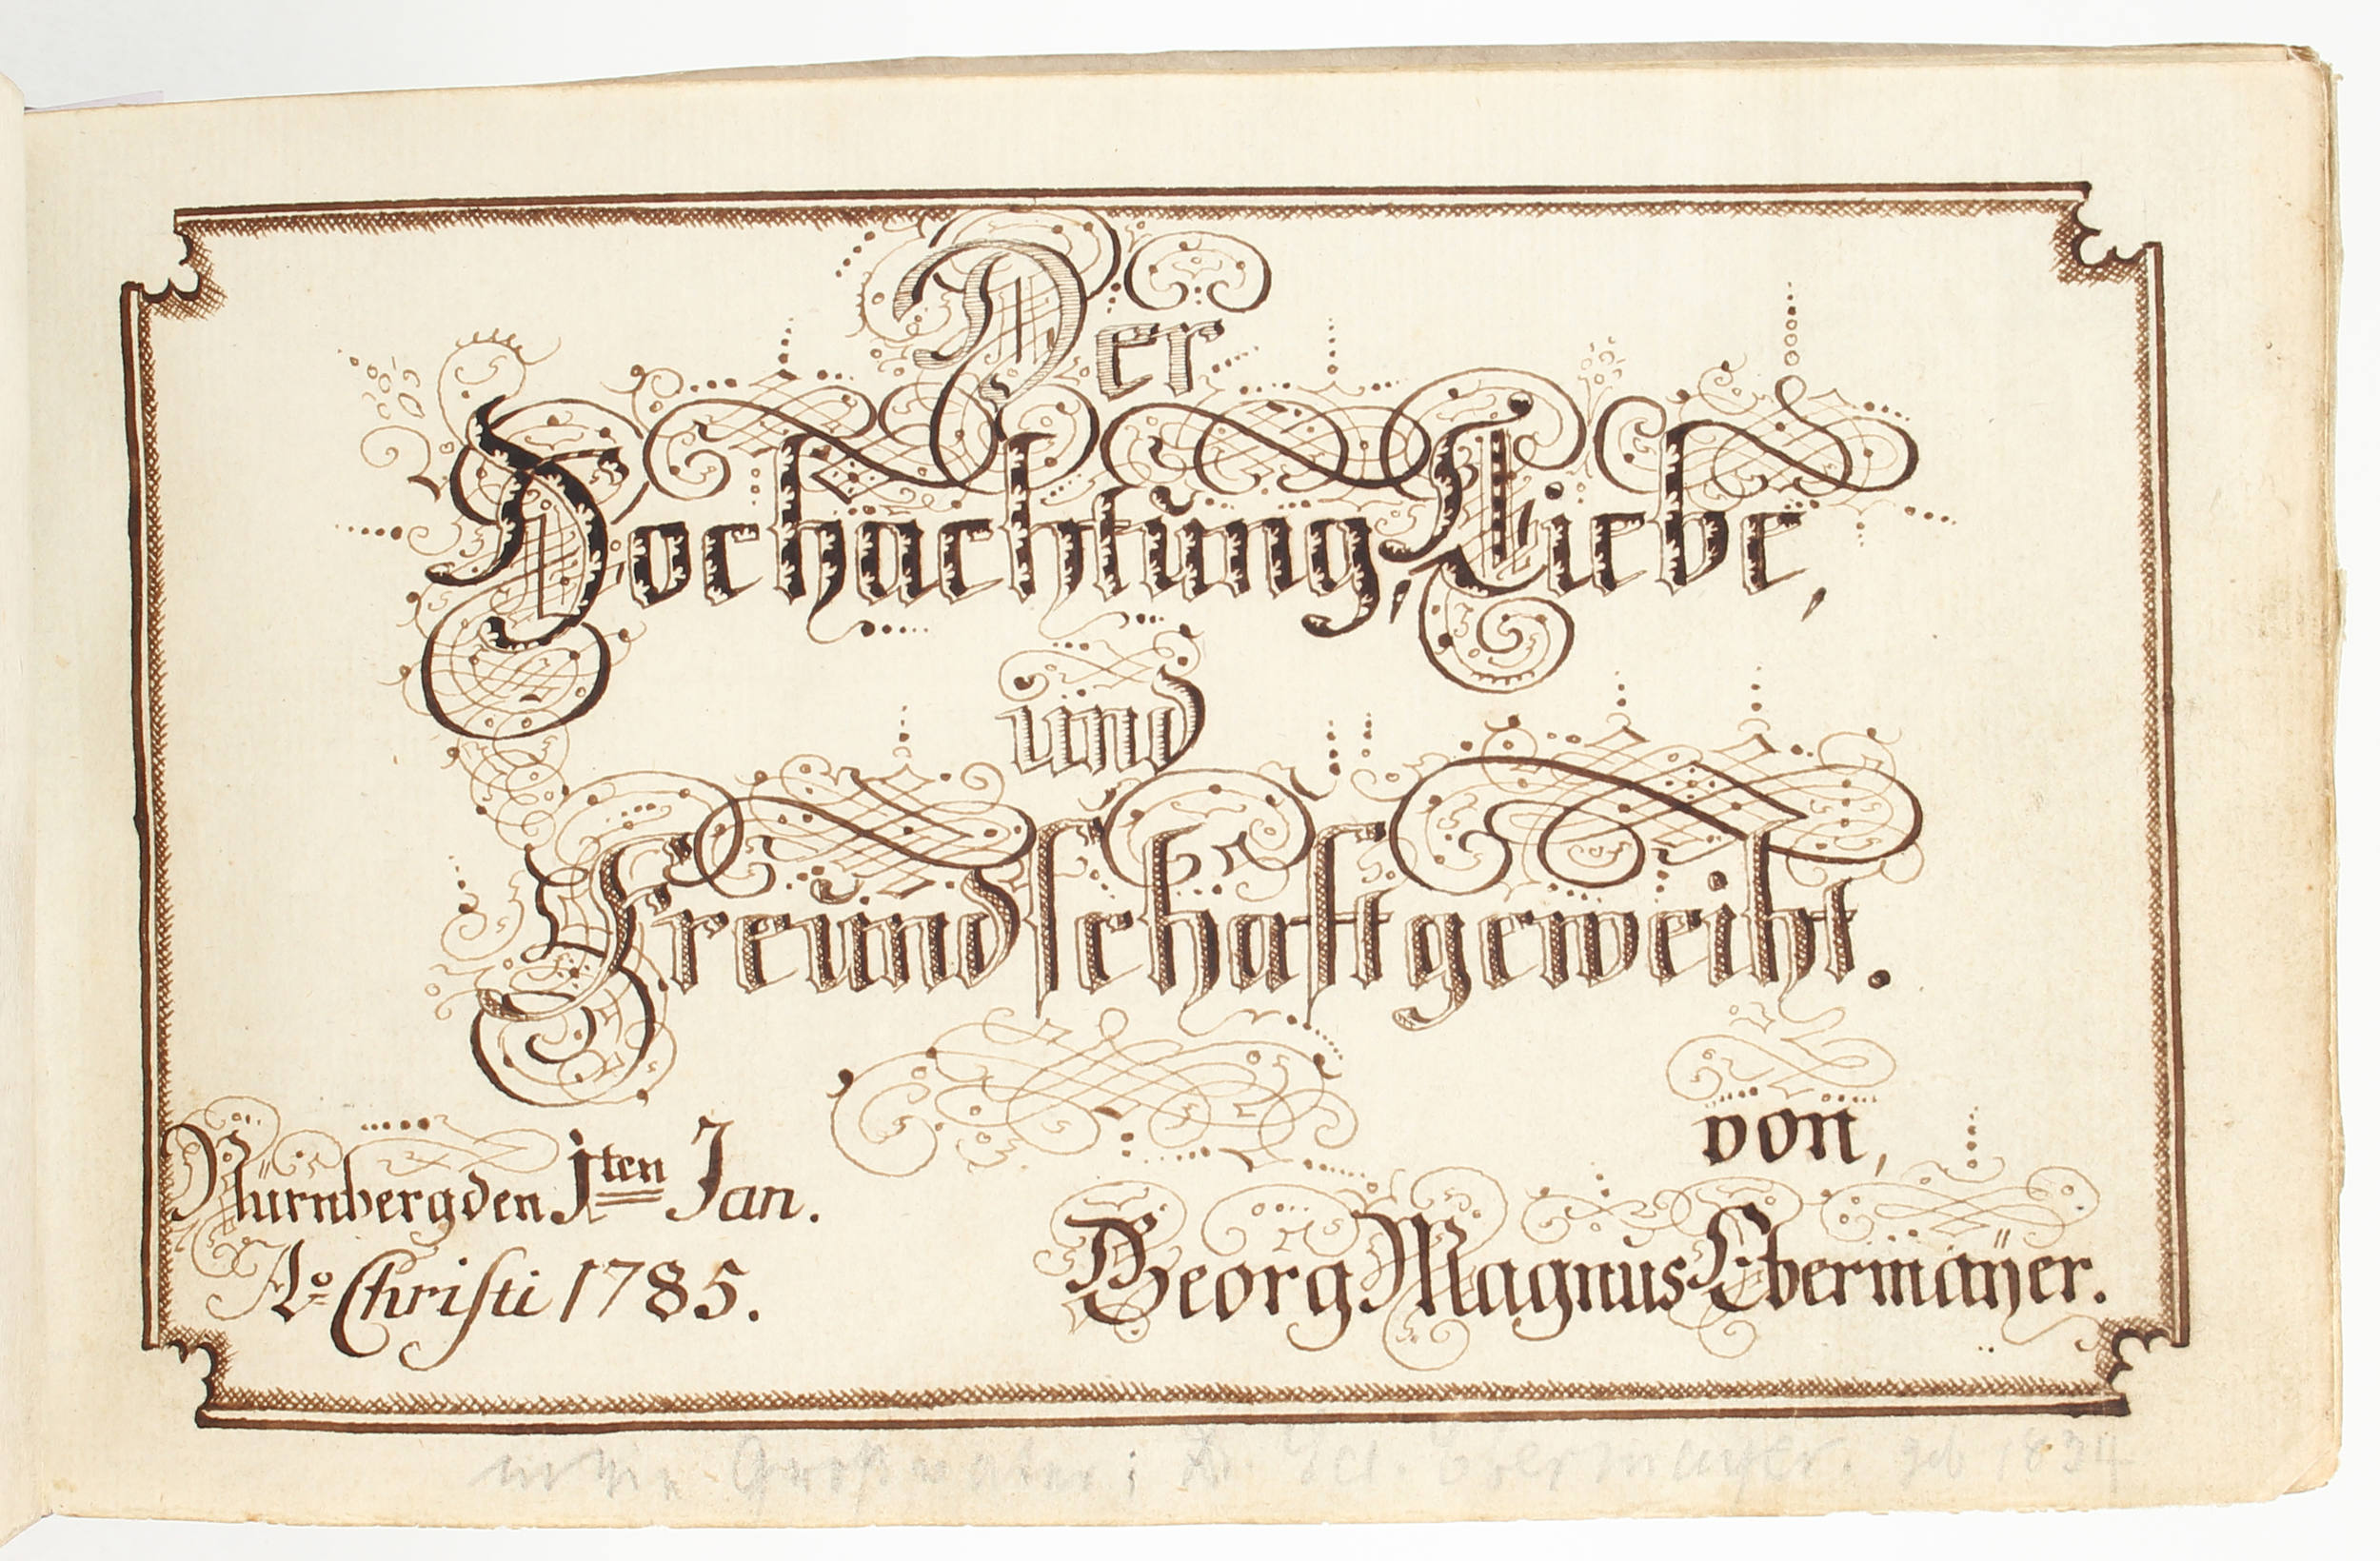 Der
Hochachtung, Liebe,
und
Freundschaft geweiht.
von,
Nürnberg den 1ten Jan.
Ao Christi 1785.
Georg Magnus Ebermaÿer.
mein Großvater; Ebermayer, geb 1834